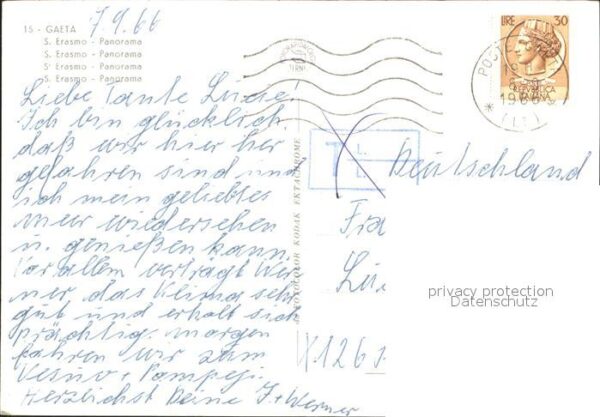 15 - GAETA 7.9.66
S. Erasmo - Panorama
S. Erasmo - Panorama
Sᵗ Erasmo - Panorama
S. Erasmo - Panorama
Liebe Tante Luzie!
Ich bin glücklich,
daß wir hier her
gefahren sind und
ich mein geliebtes
Meer wiedersehen
u. genießen kann.
Vor allem verträgt Wer
ner, das Klima sehr
gut und erholt sich
prächtig. Morgen
fahren wir zum
Vesuv + Pompeji.
Herzlichst Deine J + Werner
FOTOCOLOR KODAK EKTACHROME
LIRE 30
REPVBBLICA
ITALIANA
POSTE
1966
(LT)
T
Deutschland
Fra
Lu
privacy protection
Datenschutz